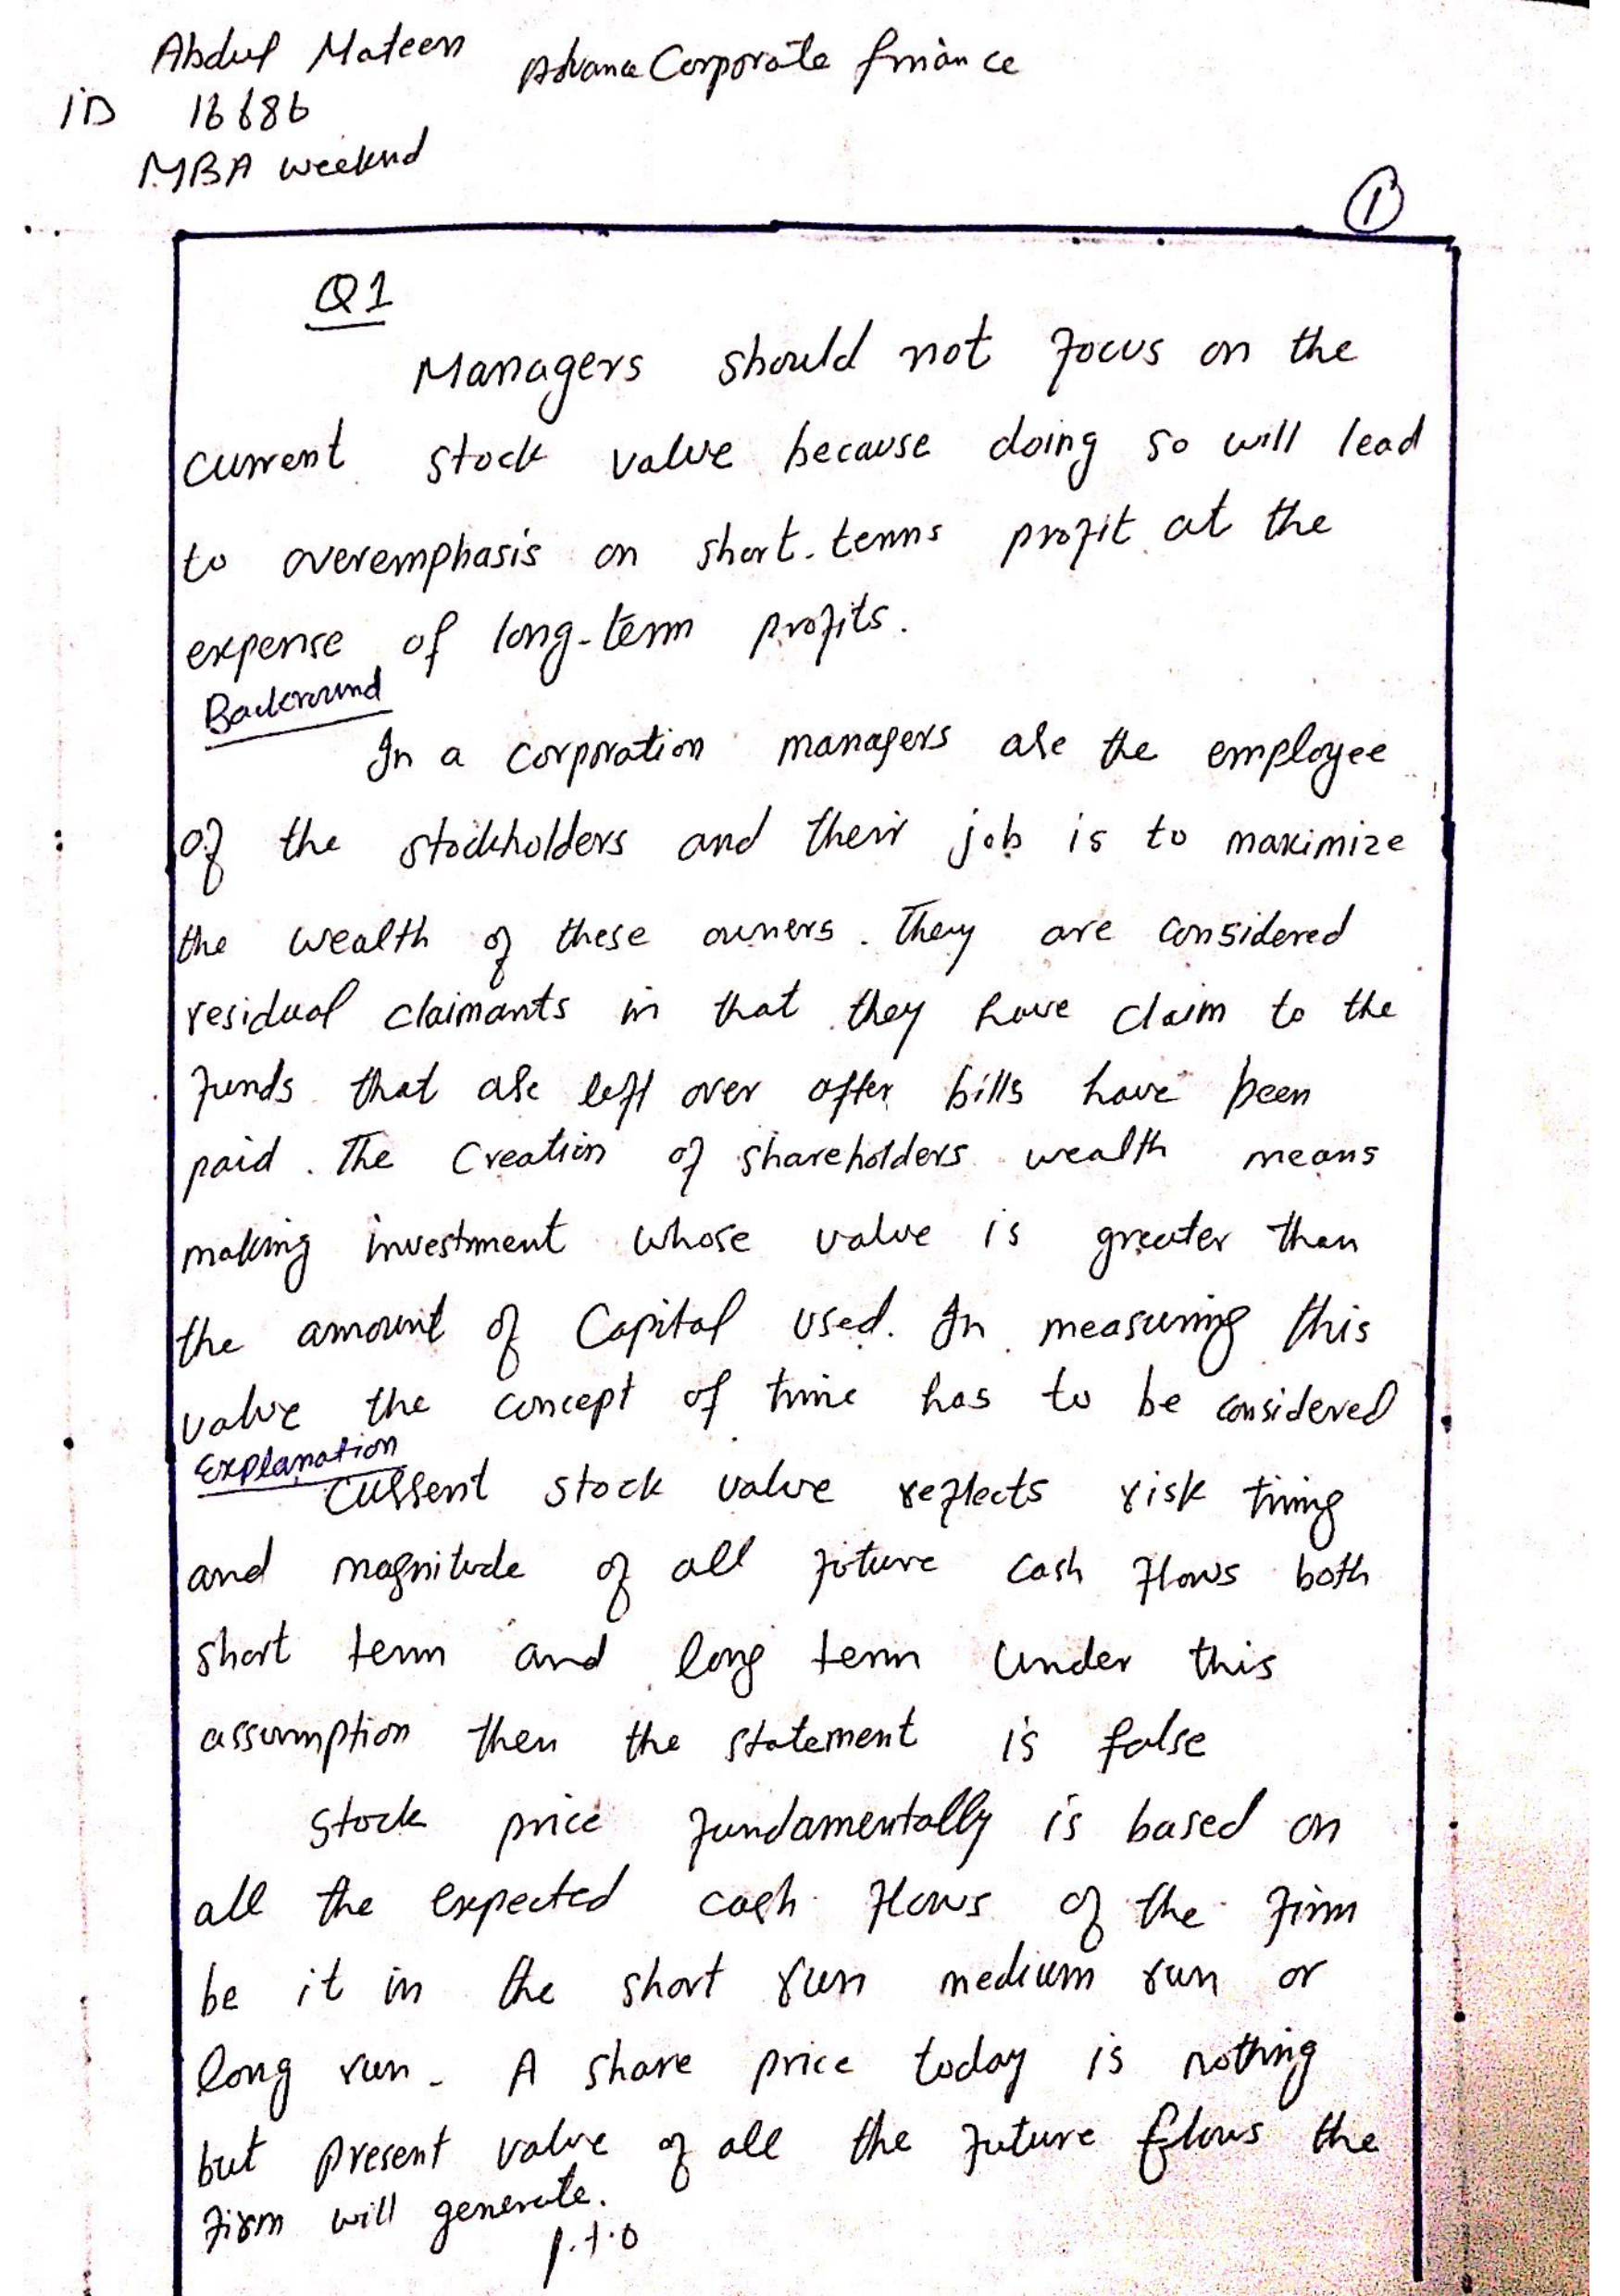 Abdul Mateen Advance Corporate finance
ID 16686
MBA weekend
1
Q1
Managers should not focus on the
current stock value because doing so will lead
to overemphasis on short-terms profit at the
expense of long-term profits.
Backround
In a corporation managers are the employee
of the stockholders and their job is to maximize
the wealth of these owners. They are considered
residual claimants in that they have claim to the
funds that are left over after bills have been
paid. The Creation of shareholders wealth means
making investment whose value is greater than
the amount of Capital used. In measuring this
value the concept of time has to be considered
Explanation
Current stock value reflects risk timing
and magnitude of all future cash flows both
short term and long term Under this
assumption then the statement is false
Stock price fundamentally is based on
all the expected cash flows of the firm
be it in the short run medium run or
long run. A share price today is nothing
but present value of all the future flows the
firm will generate.
p.t.o